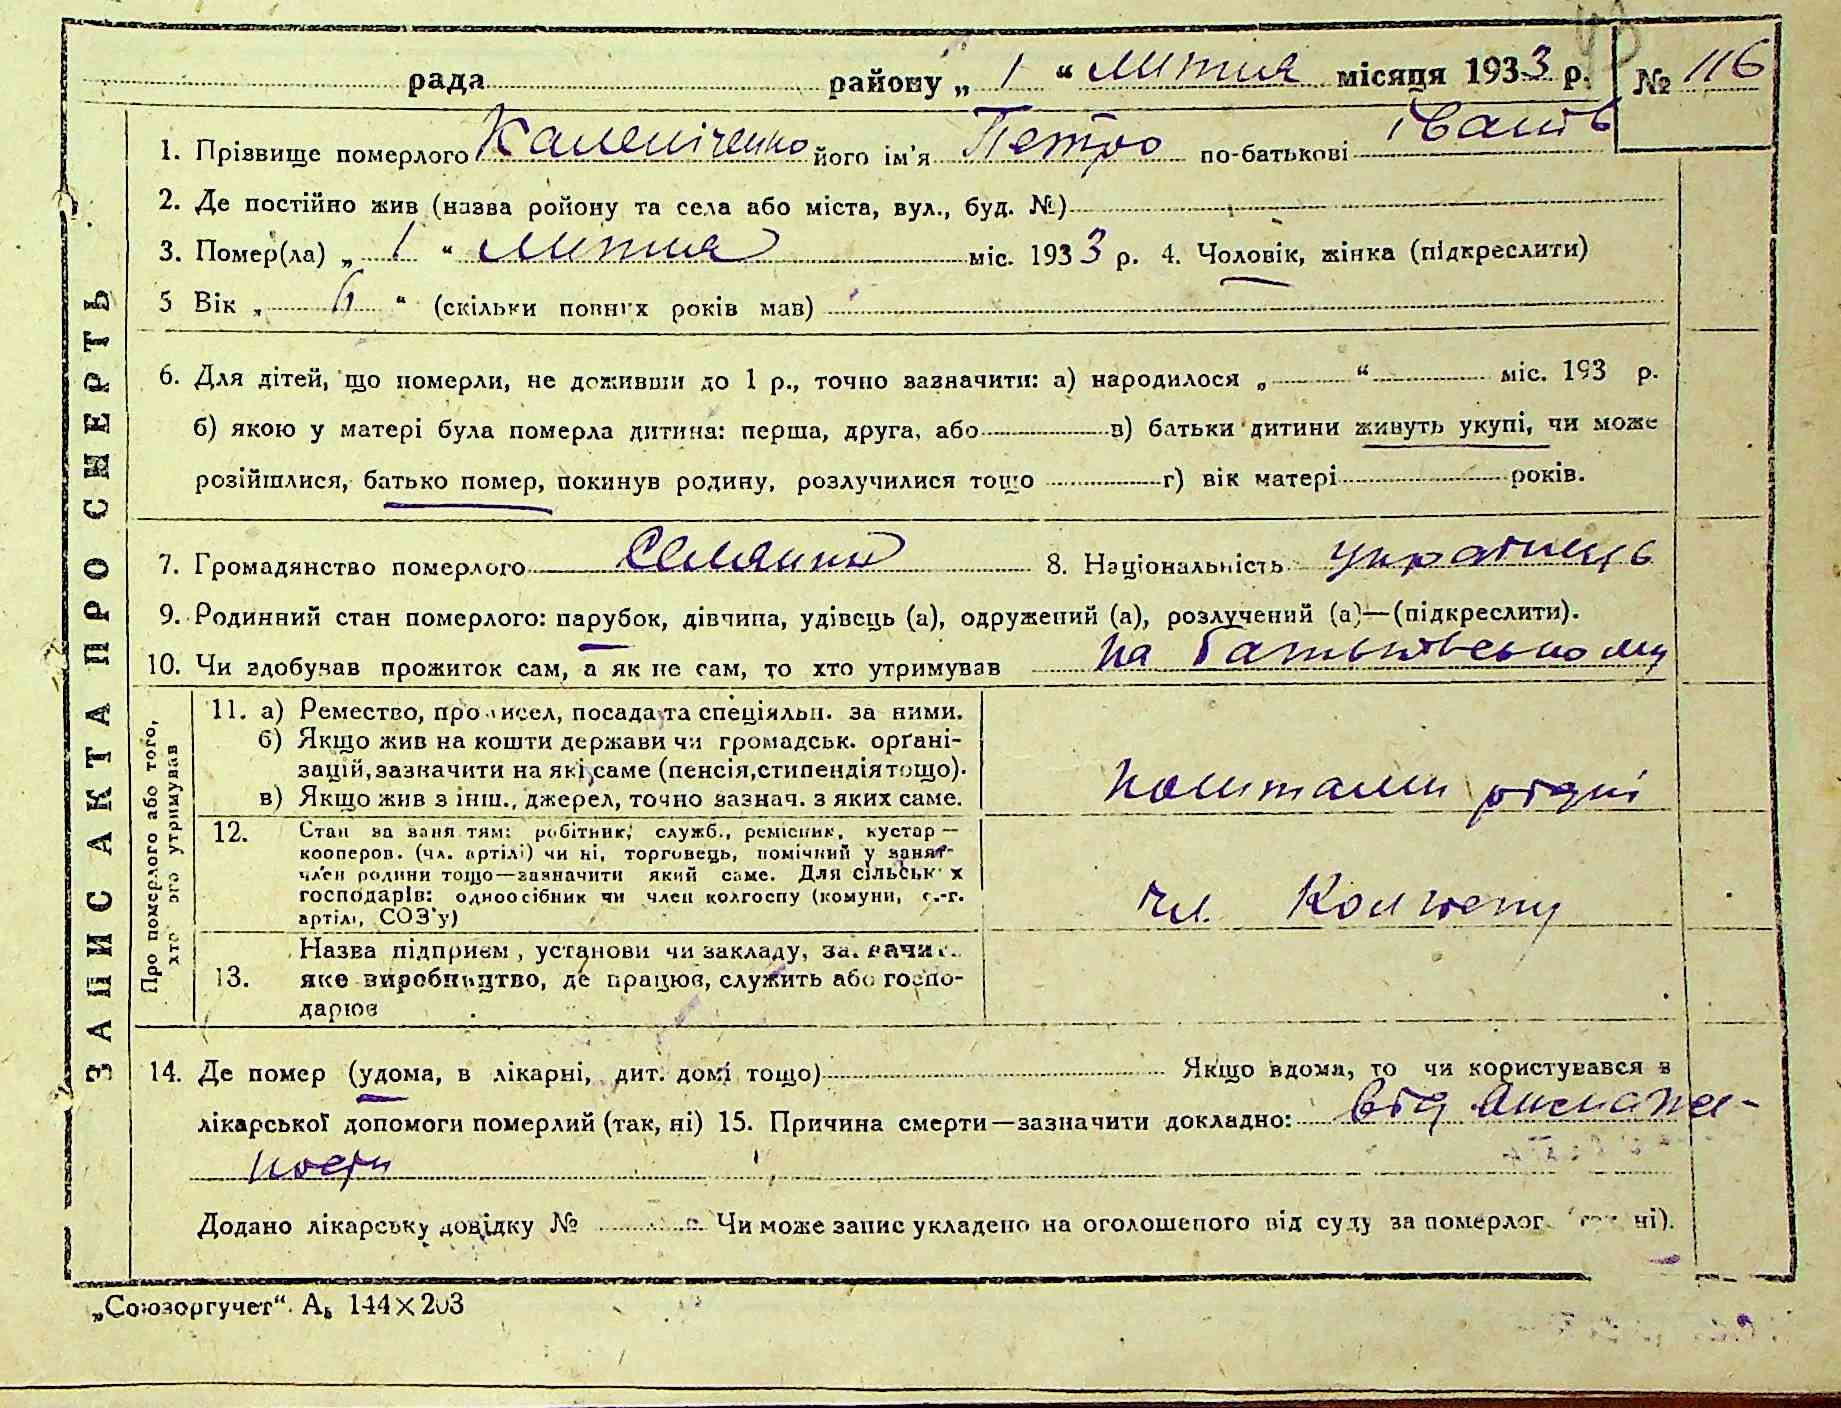 рада району „ 1 “ липня місяця 1933 р. № 116
1. Прізвище померлого Калениченко його ім'я Петро по-батькові Іванів
2. Де постійно жив (назва району та села або міста, вул., буд. №)
3. Помер(ла) „ 1 “ липня міс. 1933 р. 4. Чоловік, жінка (підкреслити)
5 Вік „ 6 “ (скільки повних років мав)
6. Для дітей, що померли, не доживши до 1 р., точно зазначити: а) народилося „ “ міс. 193 р.
б) якою у матері була померла дитина: перша, друга, або в) батьки дитини живуть укупі, чи може
розійшлися, батько помер, покинув родину, розлучилися тощо г) вік матері років.
7. Громадянство померлого 8. Національність українець
9. Родинний стан померлого: парубок, дівчина, удівець (а), одружений (а), розлучений (а)—(підкреслити).
10. Чи здобував прожиток сам, а як не сам, то хто утримував на батьківському
ЗАПИС АКТА ПРО СМЕРТЬ
Про померлого або того,
хто його утримував
11. а) Ремество, промисел, посада та спеціяльн. за ними.
б) Якщо жив на кошти держави чи громадськ. органі-
зацій, зазначити на які саме (пенсія, стипендія тощо).
в) Якщо жив з інш., джерел, точно зазнач. з яких саме.
12. Стан за заняттям: робітник, служб., ремісник, кустар—
кооперов. (чл. артілі) чи ні, торговець, помічний у занят-
член родини тощо—зазначити який саме. Для сільськ х
господарів: одноосібник чи член колгоспу (комуни, с.-г.
артілі, СОЗ'у)
чл. Колгоспу
Назва підприєм, установи чи закладу, зазначит.
13. яке виробництво, де працює, служить або госпо-
дарює
14. Де помер (удома, в лікарні, дит. домі тощо) Якщо вдома, то чи користувався з
лікарської допомоги померлий (так, ні) 15. Причина смерти—зазначити докладно: від виснаже-
ности
Додано лікарську довідку № Чи може запис укладено на оголошеного від суду за померлог ні).
„Союзоргучет“. А₅ 144×203